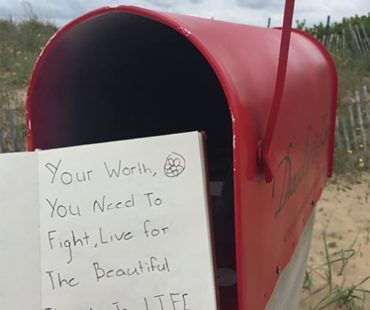 Your Worth,
You Need To
Fight, Live for
The Beautiful
In LIFE